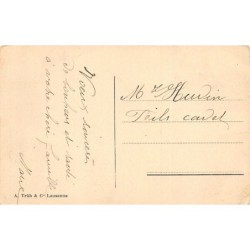 Voeux sincères
de bonheur et santé
à votre chère famille
Marc
Mr Hudin
Fils cadet
A. Trüb & Cie Lausanne